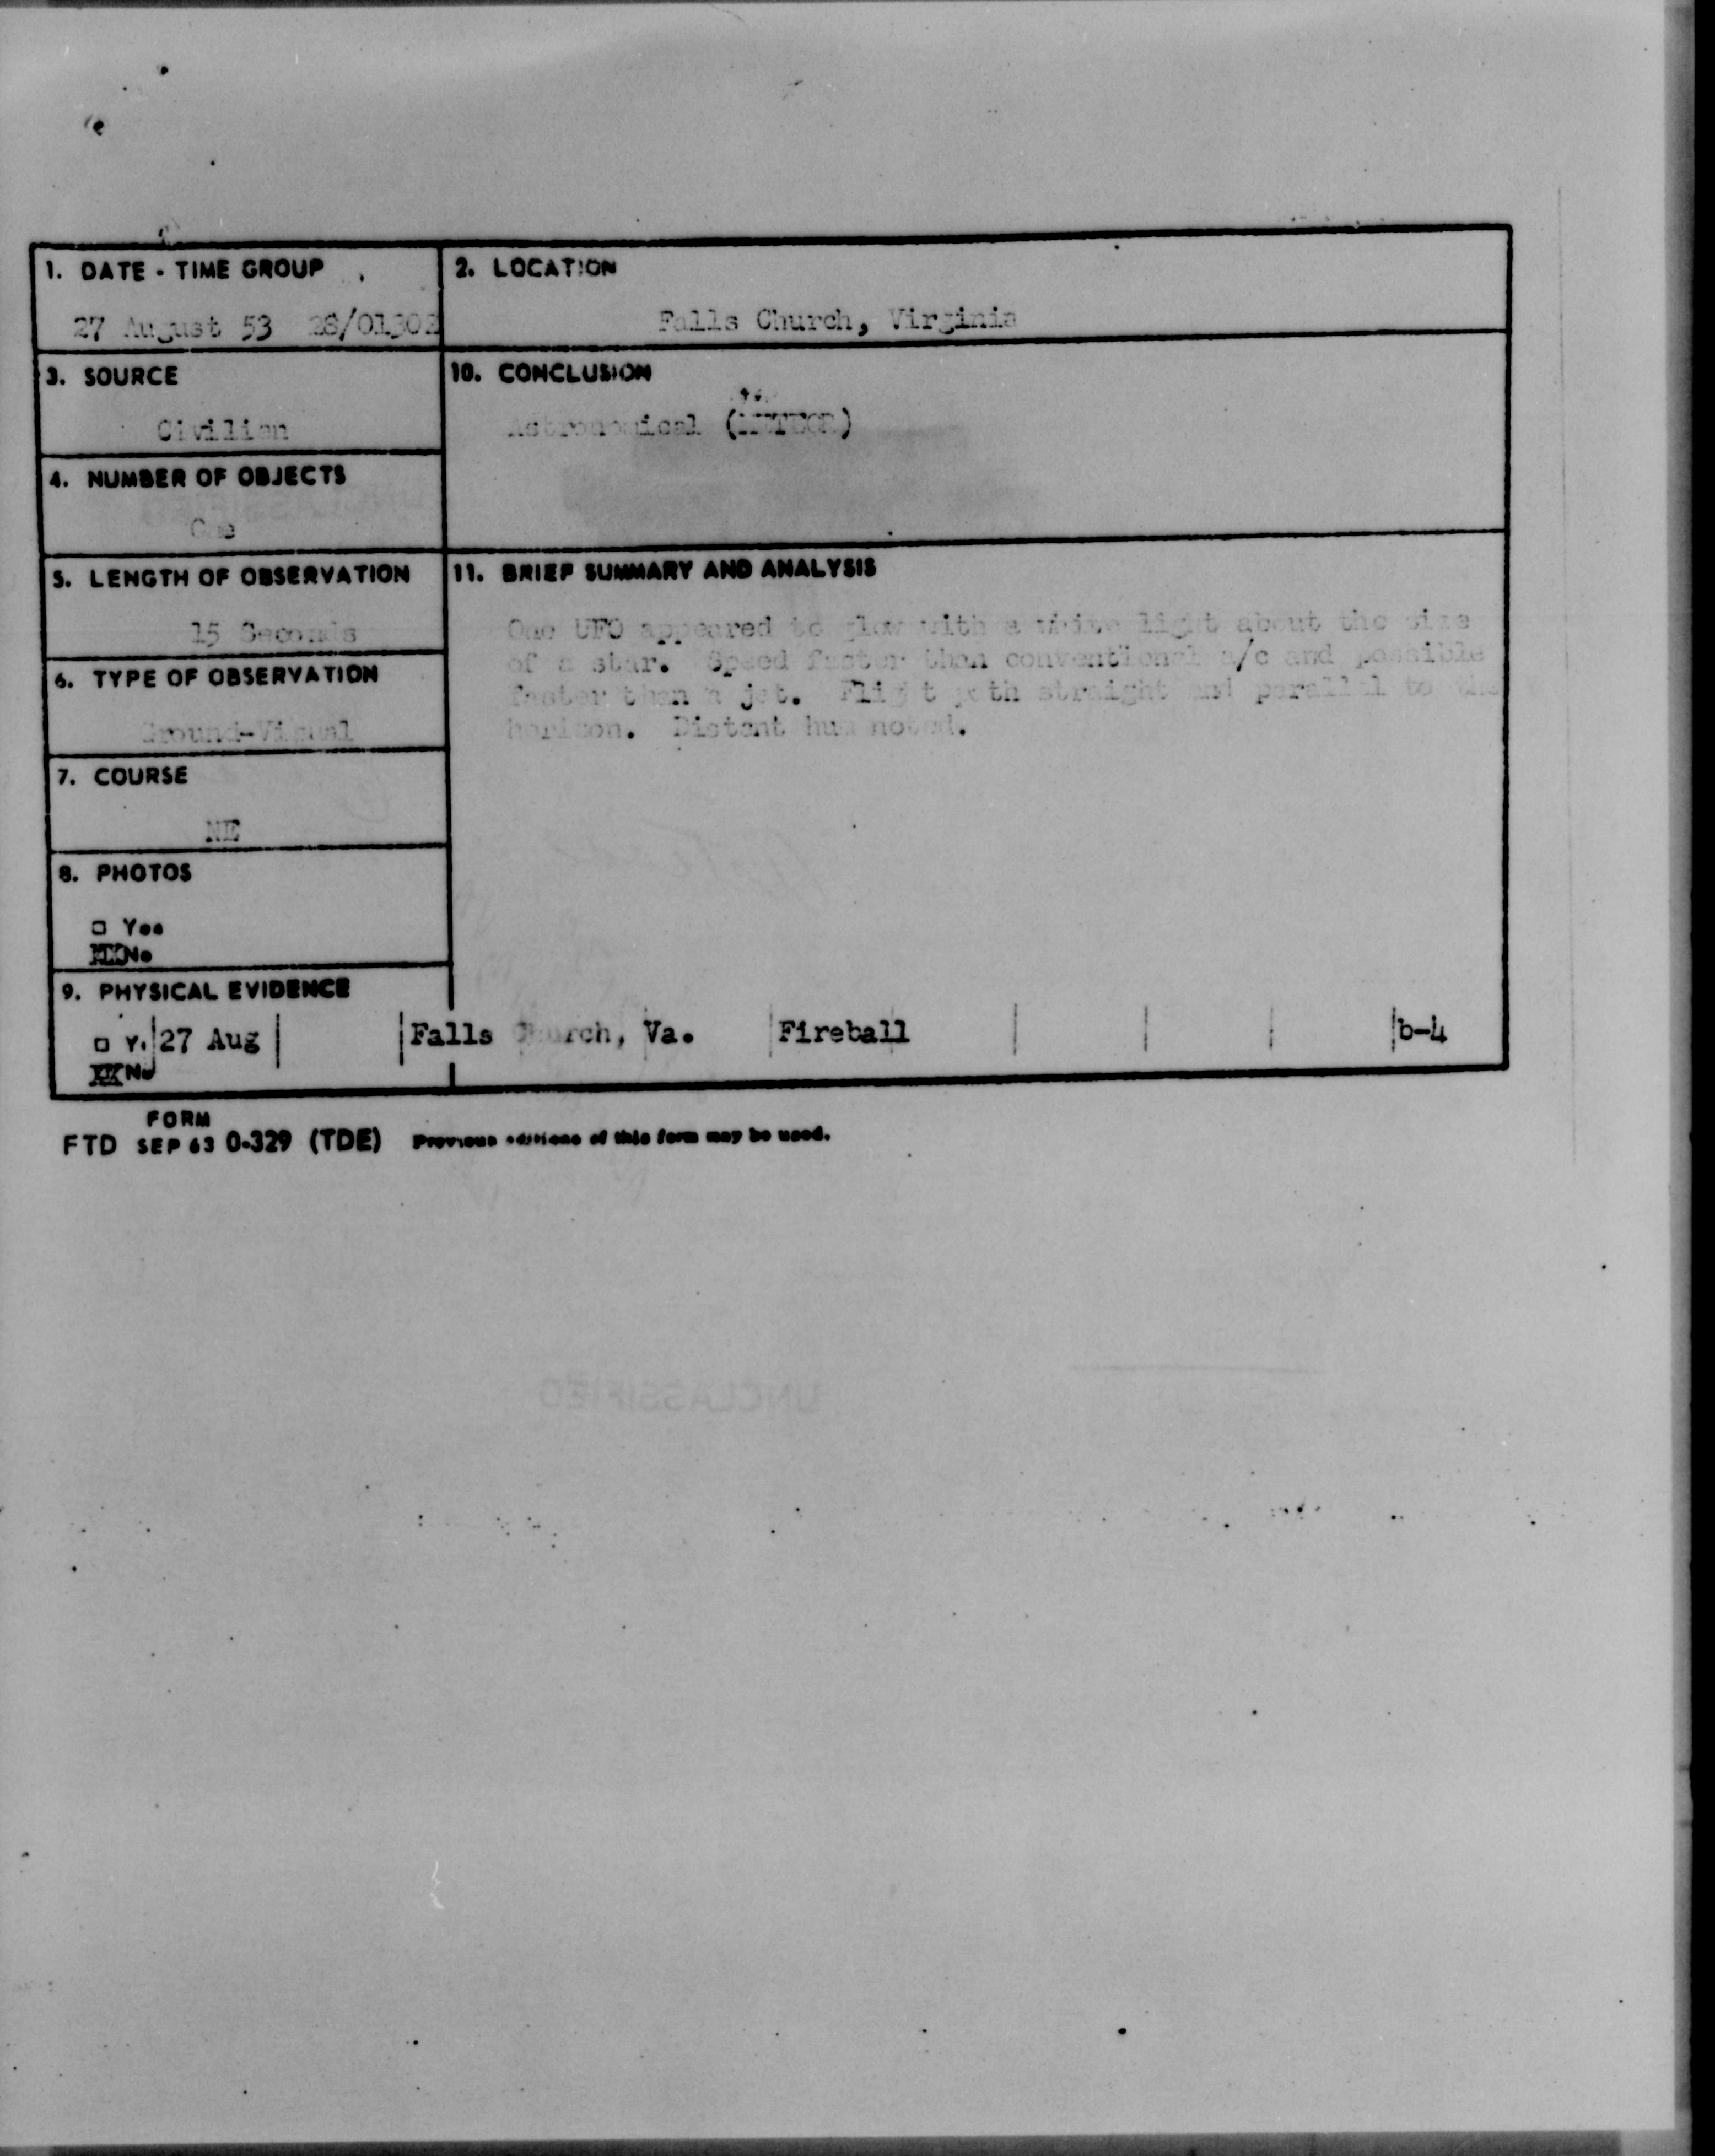 1. DATE - TIME GROUP
27 August 53 28/0130Z
2. LOCATION
Falls Church, Virginia
3. SOURCE
Civilian
10. CONCLUSION
Astronomical (METEOR)
4. NUMBER OF OBJECTS
One
5. LENGTH OF OBSERVATION
15 Seconds
11. BRIEF SUMMARY AND ANALYSIS
One UFO appeared to glow with a white light about the size
of a star. Speed faster than conventional a/c and possible
faster than a jet. Flight path straight and parallel to the
horizon. Distant hum noted.
6. TYPE OF OBSERVATION
Ground-Visual
7. COURSE
NE
8. PHOTOS
□ Yes
XX No
9. PHYSICAL EVIDENCE
□ Y. 27 Aug Falls Church, Va. Fireball b-4
XX No
FORM
FTD SEP 63 0-329 (TDE) Previous editions of this form may be used.
UNCLASSIFIED